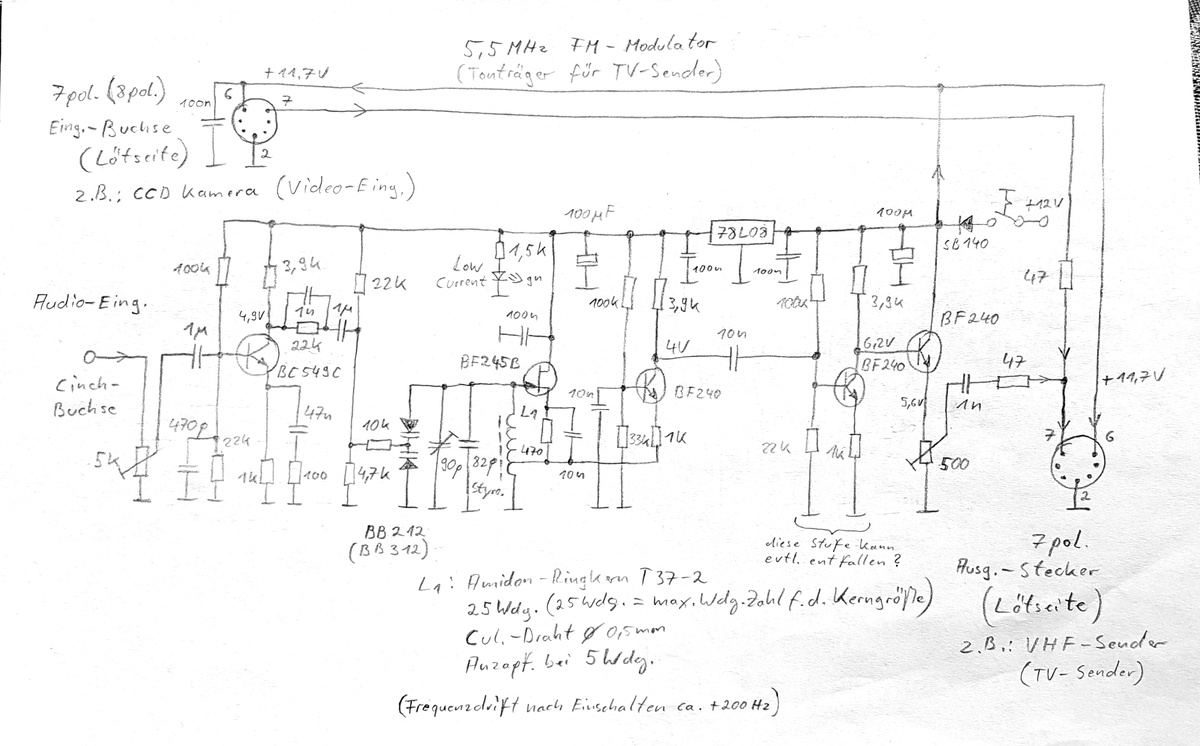 5,5 MHz FM-Modulator
(Tonträger für TV-Sender)
+11,7V
7pol. (8pol.)
100n
6
7
Eing.-Buchse
(Lötseite)
2
z.B.: CCD Kamera (Video-Eing.)
100µF
78L08
100µ
+12V
SB140
100k
3,9k
22k
1,5k
Low
Current
gn
100n
100n
100k
3,9k
100k
3,9k
47
Audio-Eing.
4,9V
1n
22k
1µ
1µ
BC549C
100n
BF245B
4V
10n
BF240
6,2V
BF240
BF240
5,6V
47
1n
+11,7V
Cinch-
Buchse
5k
470p
22k
1k
47n
100
10k
4,7k
90p
82p
Styro.
L1
470
10n
10n
33k
1k
22k
1k
500
7
6
2
BB212
(BB312)
diese Stufe kann
evtl. entfallen?
7pol.
Ausg.-Stecker
(Lötseite)
z.B.: VHF-Sender
(TV-Sender)
L1: Amidon-Ringkern T37-2
25Wdg. (25Wdg. = max.Wdg.Zahl f.d. Kerngröße)
CuL.-Draht ø 0,5mm
Anzapf. bei 5Wdg.
(Frequenzdrift nach Einschalten ca. +200Hz)